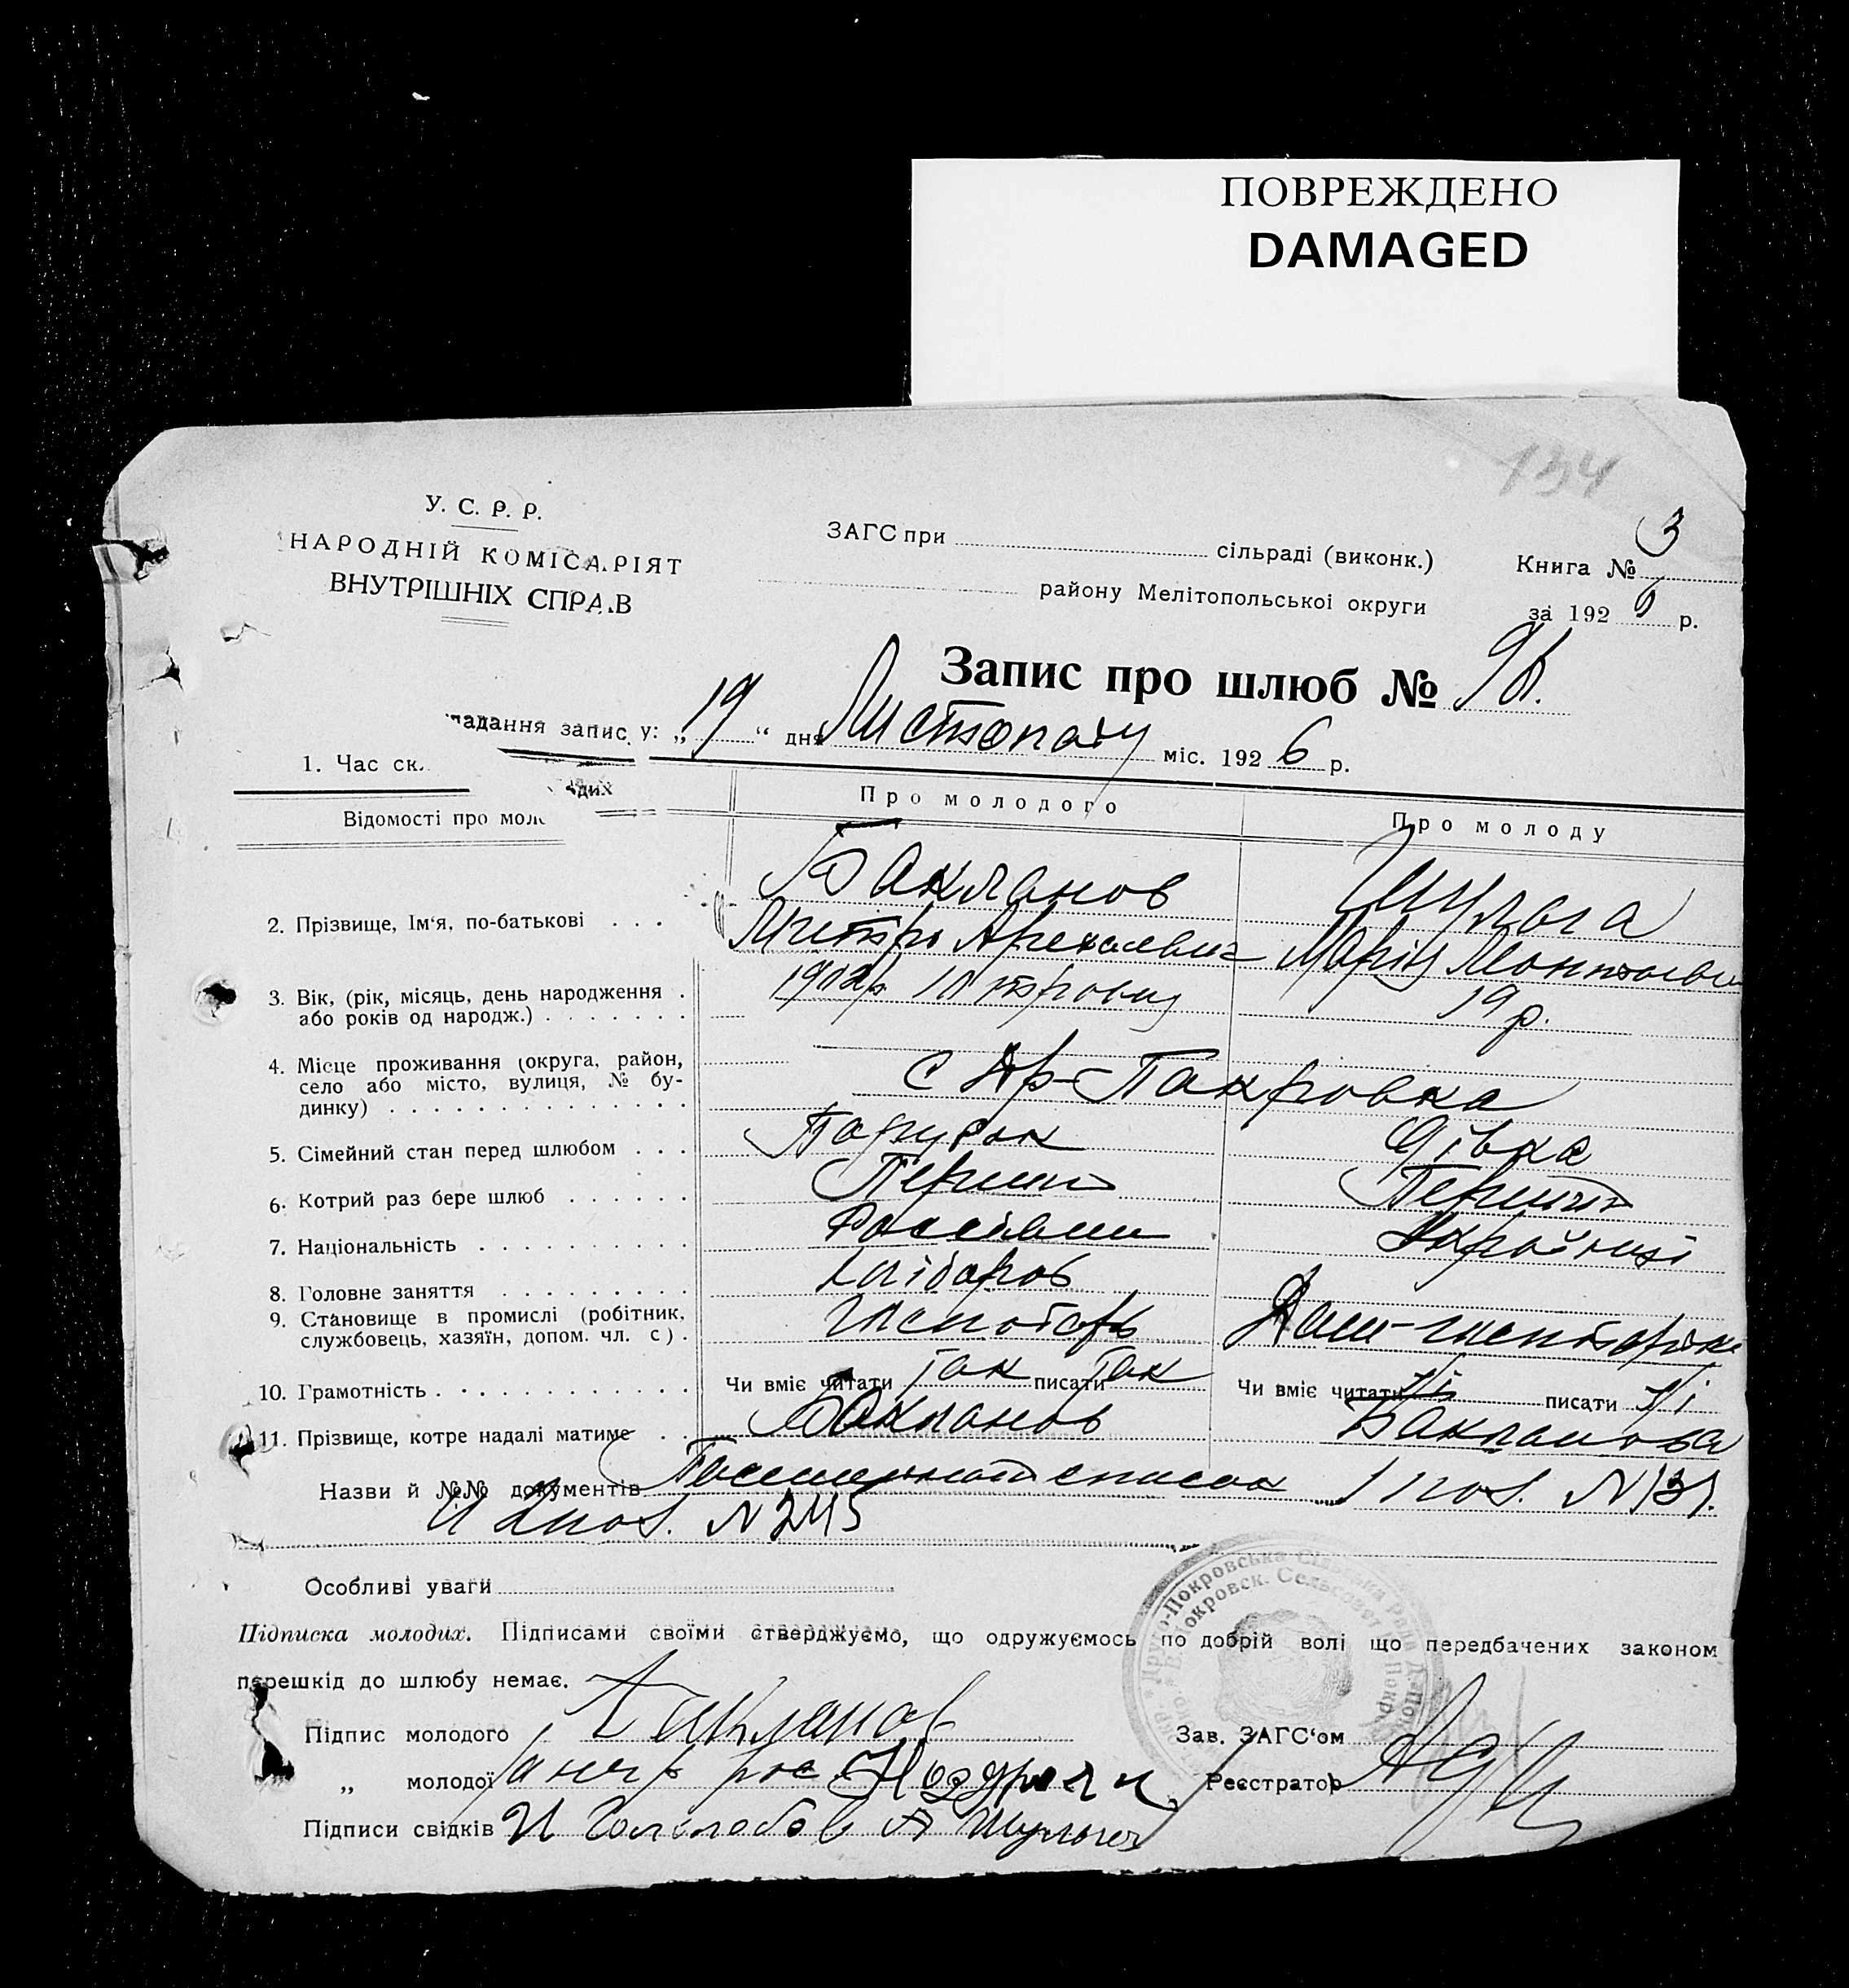 ПОВРЕЖДЕНО
DAMAGED
134
У. С. Р. Р.
НАРОДНІЙ КОМІСАРІЯТ
ВНУТРІШНІХ СПРАВ
ЗАГС при сільраді (виконк.)
району Мелітопольської округи
Книга № 3
за 1926 р.
Запис про шлюб №
1. Час ск. ладання запису: „19“ дня Листопаду міс. 1926 р.
Відомості про мол одих
Про молодого
Про молоду
2. Прізвище, Ім'я, по-батькові . . .
Бакланов
Шульга
Марія
3. Вік, (рік, місяць, день народження .
або років од народж.) . . . . . . .
19 р.
4. Місце проживання (округа, район,
село або місто, вулиця, № бу-
динку) . . . . . . . . . . . . . .
с Др-Покровка
5. Сімейний стан перед шлюбом . . .
Парубок
Дівка
6. Котрий раз бере шлюб . . . . . .
Перший
Перший
7. Національність . . . . . . . . . .
8. Головне заняття . . . . . . . . .
хлібороб
9. Становище в промислі (робітник,
службовець, хазяїн, допом. чл. с) .
10. Грамотність . . . . . . . . . . . .
Чи вміє читати так писати так
Чи вміє читати ні писати ні
11. Прізвище, котре надалі матиме . .
Бакланов
Бакланова
Назви й №№ документів Посемейний список 1 пос. N 131.
и 2 пос. N 245
Особливі уваги
Підписка молодих. Підписами своїми стверджуємо, що одружуємось по добрій волі що передбачених законом
перешкід до шлюбу немає.
Підпис молодого Бакланов
„ молодої
Підписи свідків А Шульга
Зав. ЗАГС'ом
Реєстратор